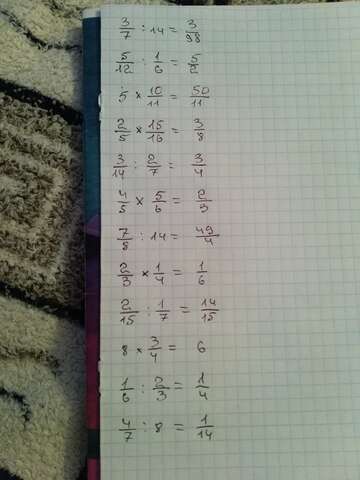 3/7 : 14 = 3/98
5/12 : 1/6 = 5/2
5 × 10/11 = 50/11
2/5 × 15/16 = 3/8
3/14 : 2/7 = 3/4
4/5 × 5/6 = 2/3
7/8 : 14 = 49/4
2/3 × 1/4 = 1/6
2/15 : 1/7 = 14/15
8 × 3/4 = 6
1/6 : 2/3 = 1/4
4/7 : 8 = 1/14